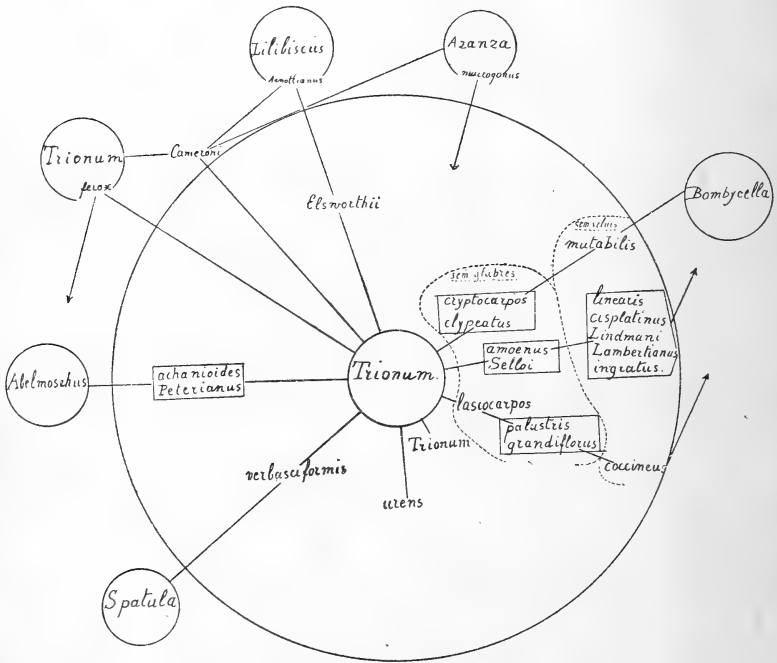 Lilibiscus
Arnottianus
Azanza
Trionum
ferox
Cameroni
Elsworthii
Bombycella
mutabilis
sem. glabres
cryptocarpos
clypeatus
linearis
cisplatinus
Lindmani
Lambertianus
ingratus.
amoenus
Selloi
Trionum.
Abelmoschus
achanioides
Peterianus
lasiocarpos
palustris
grandiflorus
Trionum
coccineus
verbasciformis
urens
Spatula